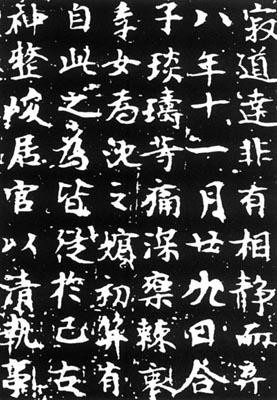 寂道達非有相静而弃
八年十一月廿九日合
子琰璹等痛深欒棘
季女為沈之嬪初笄有
自此之為皆從於己古
神整峻居官以清執